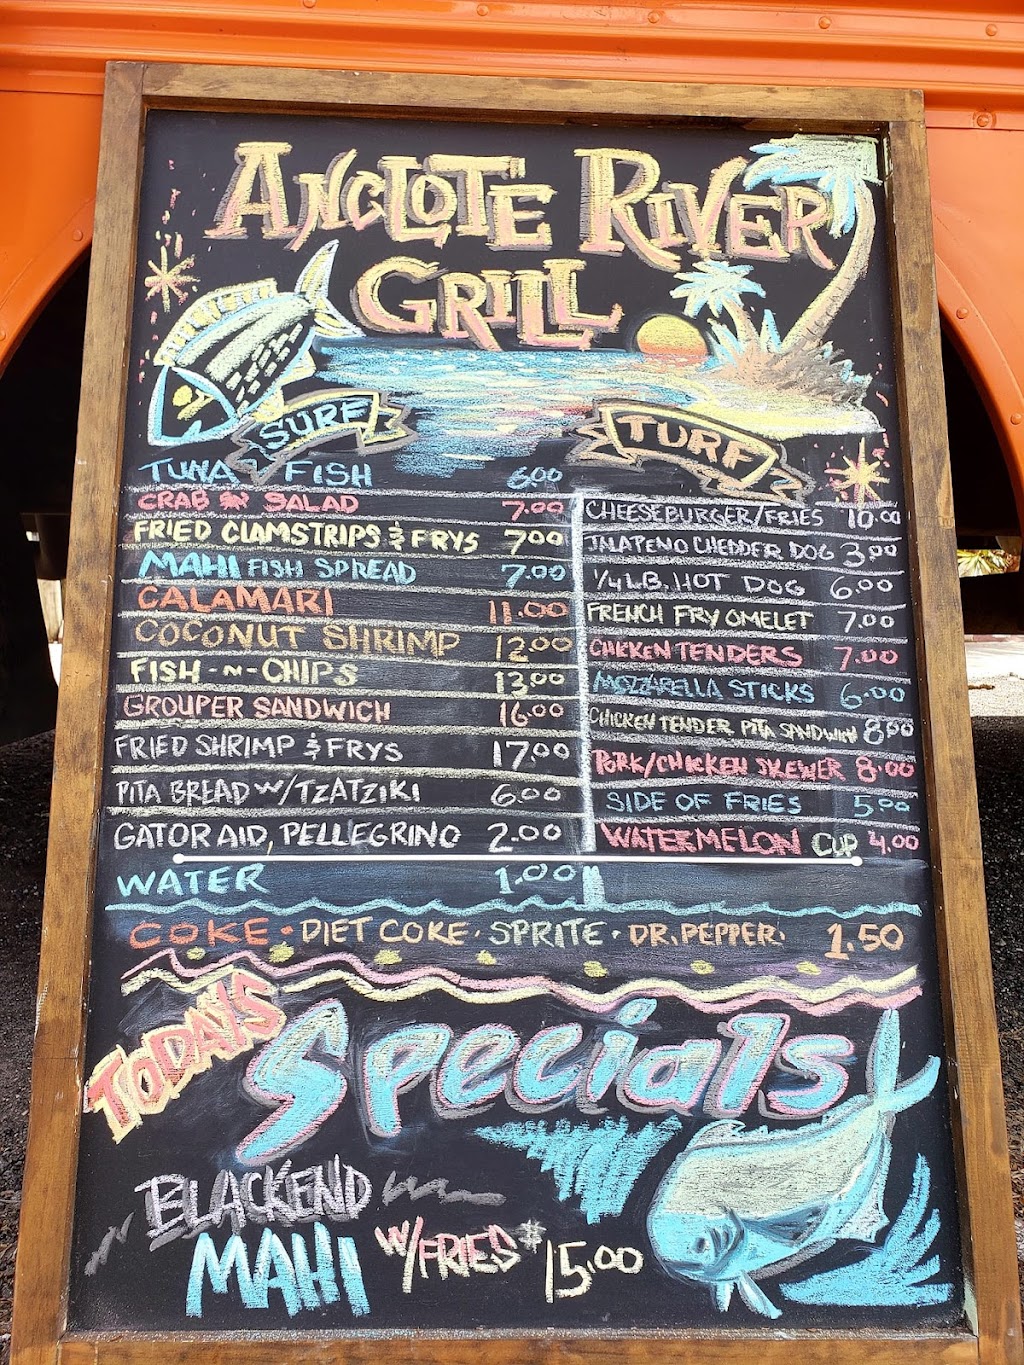 ANCLOTE RIVER
GRILL
SURF
TUNA FISH 6.00
CRAB SALAD 7.00
FRIED CLAMSTRIPS & FRYS 7.00
MAHI FISH SPREAD 7.00
CALAMARI 11.00
COCONUT SHRIMP 12.00
FISH-N-CHIPS 13.00
GROUPER SANDWICH 16.00
FRIED SHRIMP & FRYS 17.00
PITA BREAD W/TZATZIKI 6.00
GATORAID, PELLEGRINO 2.00
WATER 1.00
TURF
CHEESEBURGER/FRIES 10.00
JALAPENO CHEDDER DOG 3.00
1/4 LB. HOT DOG 6.00
FRENCH FRY OMELET 7.00
CHICKEN TENDERS 7.00
MOZZARELLA STICKS 6.00
CHICKEN TENDER PITA SANDWICH 8.00
PORK/CHICKEN SKEWER 8.00
SIDE OF FRIES 5.00
WATERMELON CUP 4.00
COKE · DIET COKE · SPRITE · DR. PEPPER · 1.50
TODAYS
Specials
BLACKEND
MAHI W/FRIES $15.00